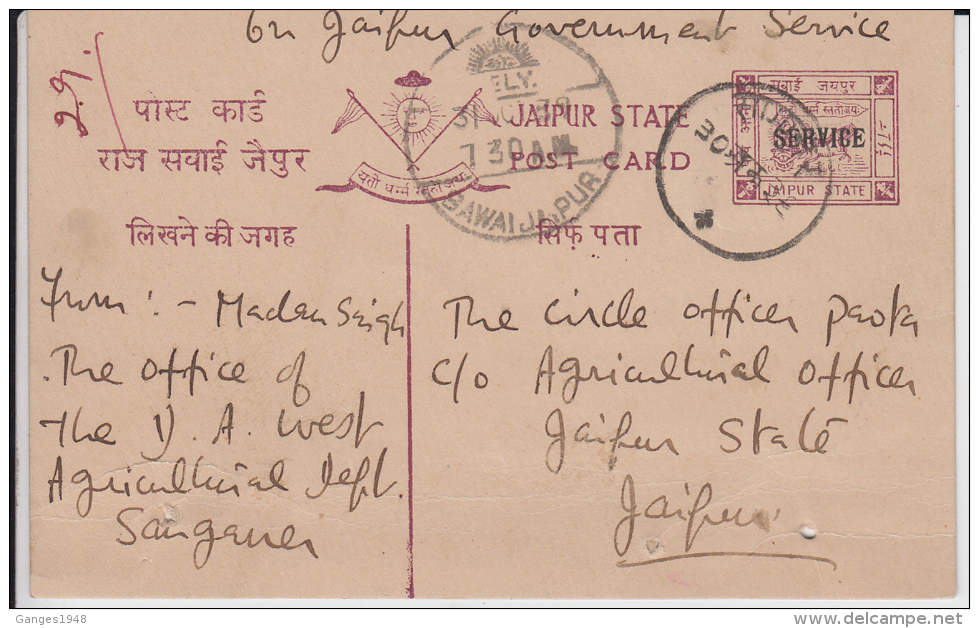 on Jaipur Government Service
पोस्ट कार्ड
राज सवाई जैपुर
JAIPUR STATE
POST CARD
यतो धर्म्म स्ततो जयः
ELY.
31
7 30 A.M
SAWAI JAIPUR
30
सवाई जयपुर
SERVICE
JAIPUR STATE
लिखने की जगह
सिर्फ़ पता
From : - Madan Singh
The office of
the D. A. West
Agricultural Dept.
Sanganer
The Circle officer Paota
C/o Agricultural officer
Jaipur State
Jaipur.
Ganges1948
www.delcampe.net